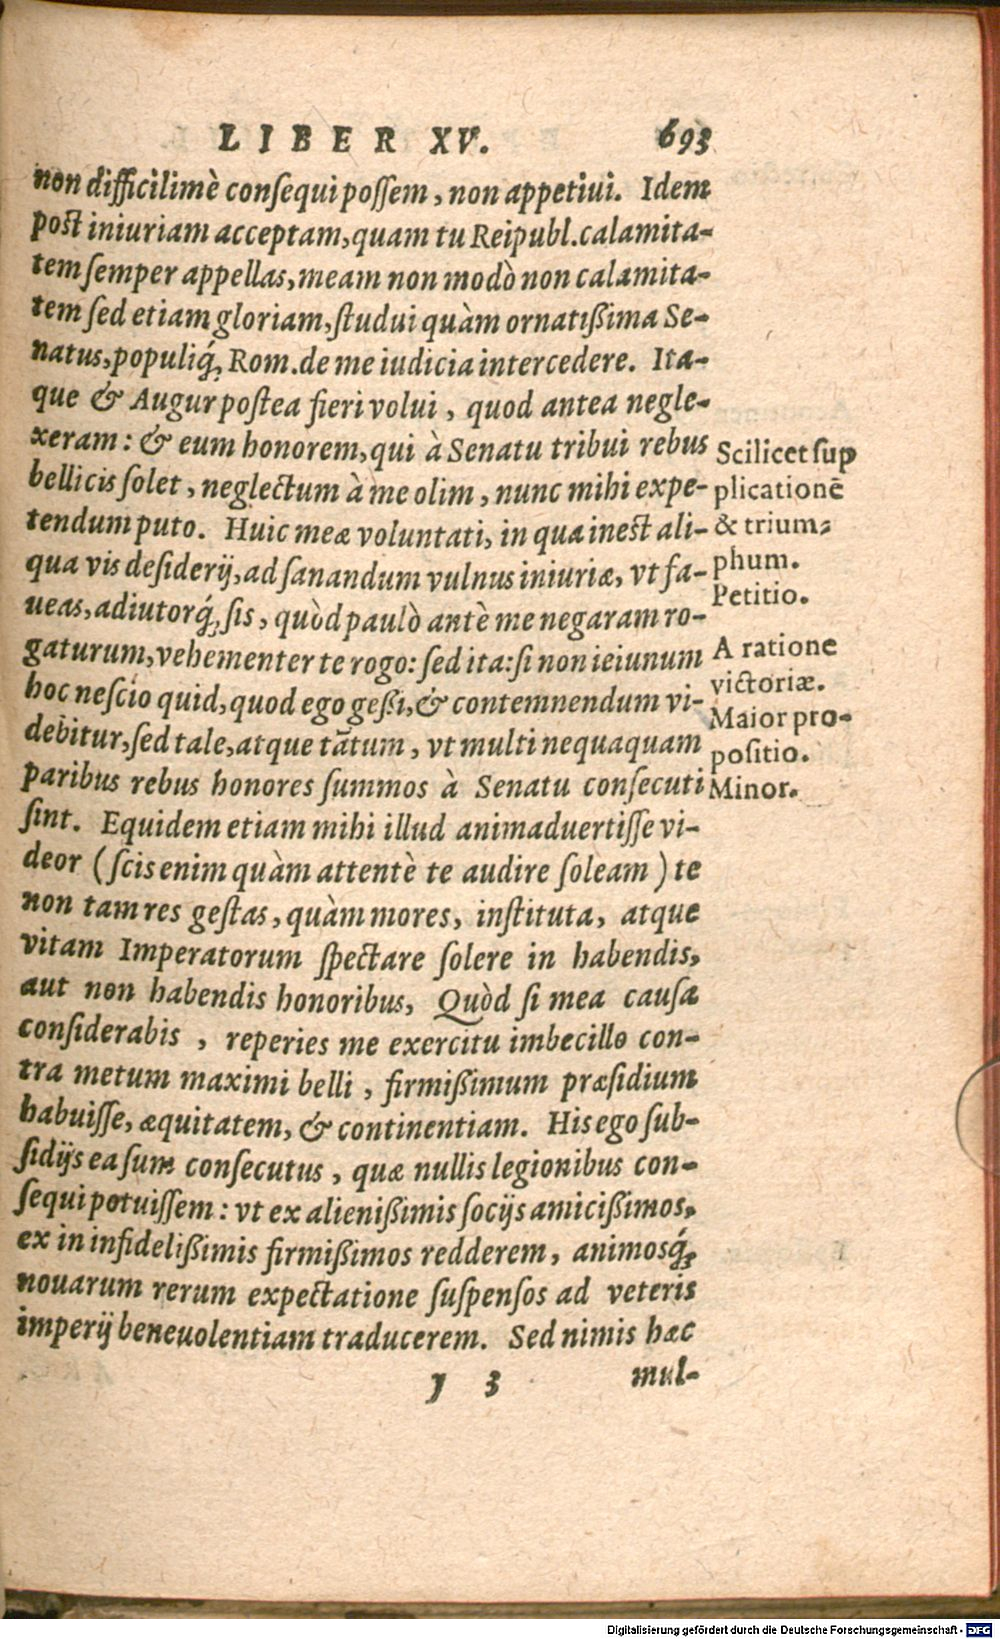 LIBER XV. 693
non difficilimè consequi possem, non appetiui. Idem
post iniuriam acceptam, quam tu Reipubl. calamita-
tem semper appellas, meam non modò non calamita-
tem sed etiam gloriam, studui quàm ornatißima Se-
natus, populiq́; Rom. de me iudicia intercedere. Ita-
que & Augur postea fieri volui, quod antea negle-
xeram: & eum honorem, qui à Senatu tribui rebus
bellicis solet, neglectum à me olim, nunc mihi expe-
tendum puto. Huic meæ voluntati, in qua inest ali-
qua vis desiderij, ad sanandum vulnus iniuriæ, vt fa-
ueas, adiutorq́; sis, quòd paulò antè me negaram ro-
gaturum, vehementer te rogo: sed ita: si non ieiunum
hoc nescio quid, quod ego geßi, & contemnendum vi-
debitur, sed tale, atque tātum, vt multi nequaquam
paribus rebus honores summos à Senatu consecuti
sint. Equidem etiam mihi illud animaduertisse vi-
deor (scis enim quàm attentè te audire soleam) te
non tam res gestas, quàm mores, instituta, atque
vitam Imperatorum spectare solere in habendis,
aut non habendis honoribus, Quòd si mea causa
considerabis, reperies me exercitu imbecillo con-
tra metum maximi belli, firmißimum præsidium
habuisse, æquitatem, & continentiam. His ego sub-
sidijs ea sum consecutus, quæ nullis legionibus con-
sequi potuissem: vt ex alienißimis socijs amicißimos,
ex in infidelißimis firmißimos redderem, animosq́;
nouarum rerum expectatione suspensos ad veteris
imperij beneuolentiam traducerem. Sed nimis hæc
y 3 mul-
Scilicet sup
plicationē
& trium-
phum.
Petitio.
A ratione
victoriæ.
Maior pro-
positio.
Minor.
Digitalisierung gefördert durch die Deutsche Forschungsgemeinschaft - DFG